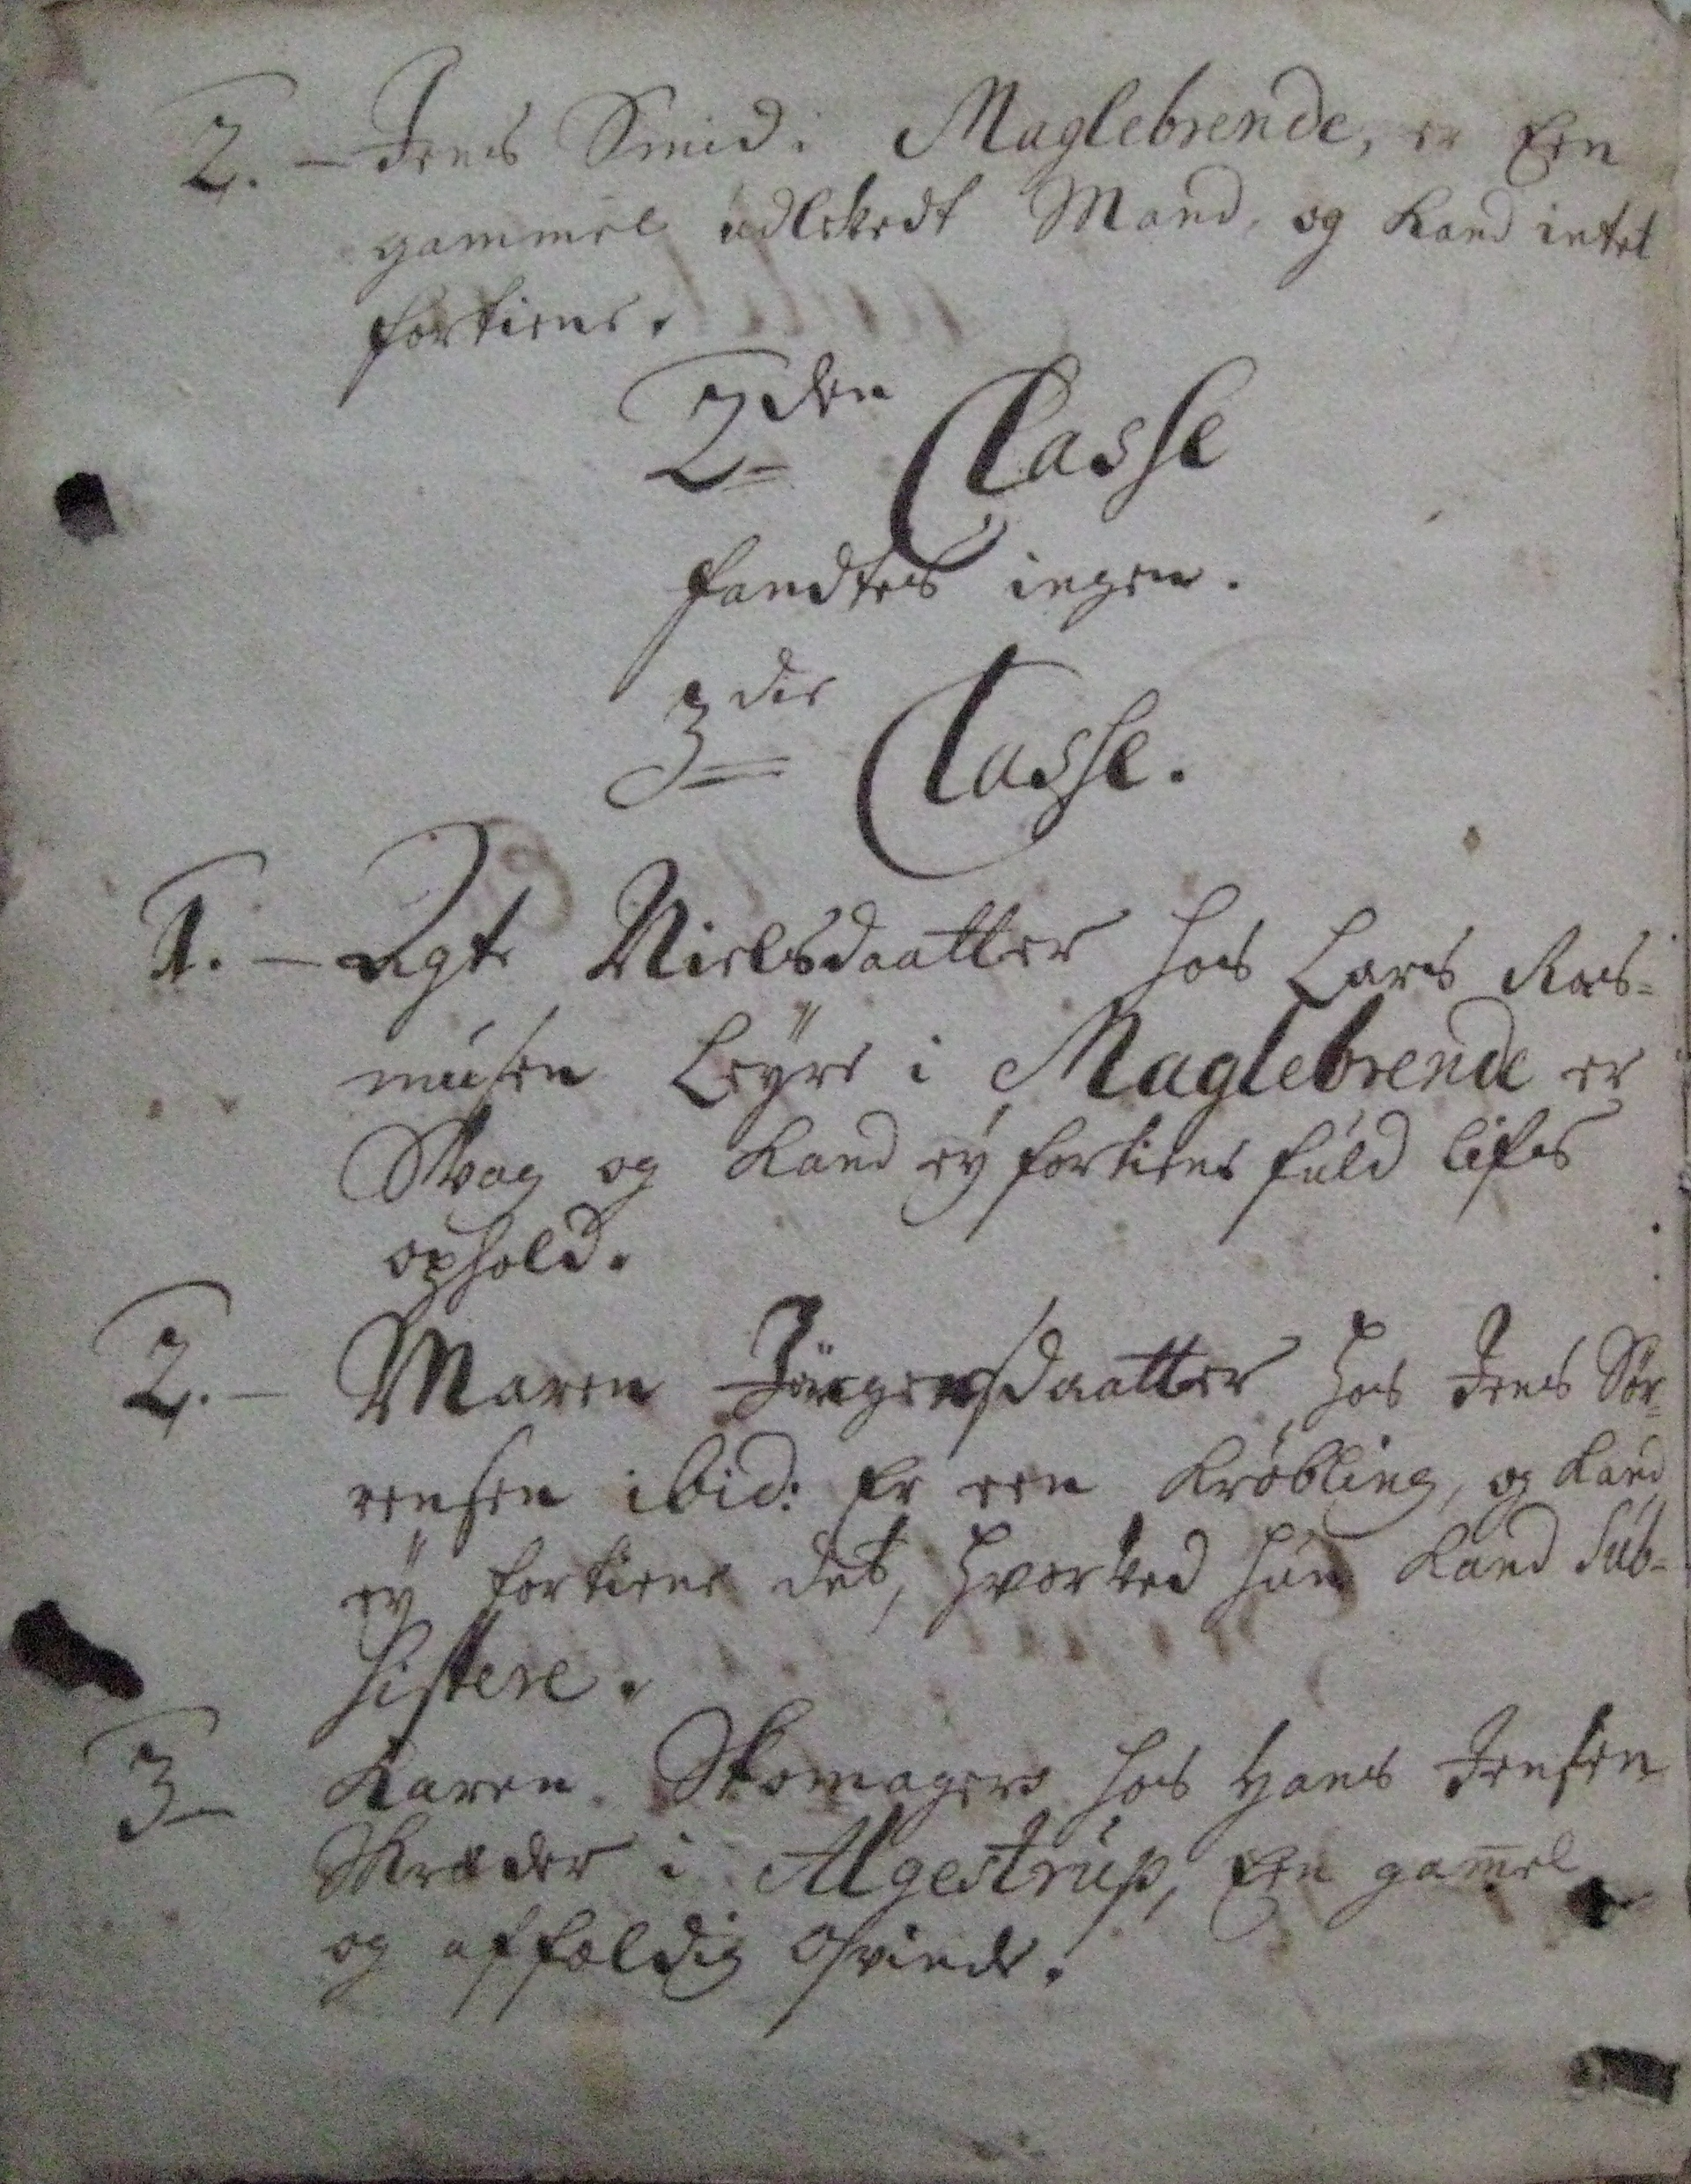 2. – Jens Smid i Maglebrende, er Een
gammel udlevedt Mand, og kand intet
fortiene.
2den Classe
fandtes ingen.
3die Classe.
1. – Ægte Nielsdaatter hos Lars Ras=
musen Leyre i Maglebrende er
Svag og kand ey fortiene fuld lifs
ophold.
2. – Maren Jörgensdaatter hos Jens Sør=
rensen ibid: Er een Krøbling, og kand
ey fortiene det, hvorved hun kand Sub=
sistere.
3 Karen Skomagers hos Hans Jensen
Skræder i Algestrup, Een gam̅el
og affældig Qvinde.